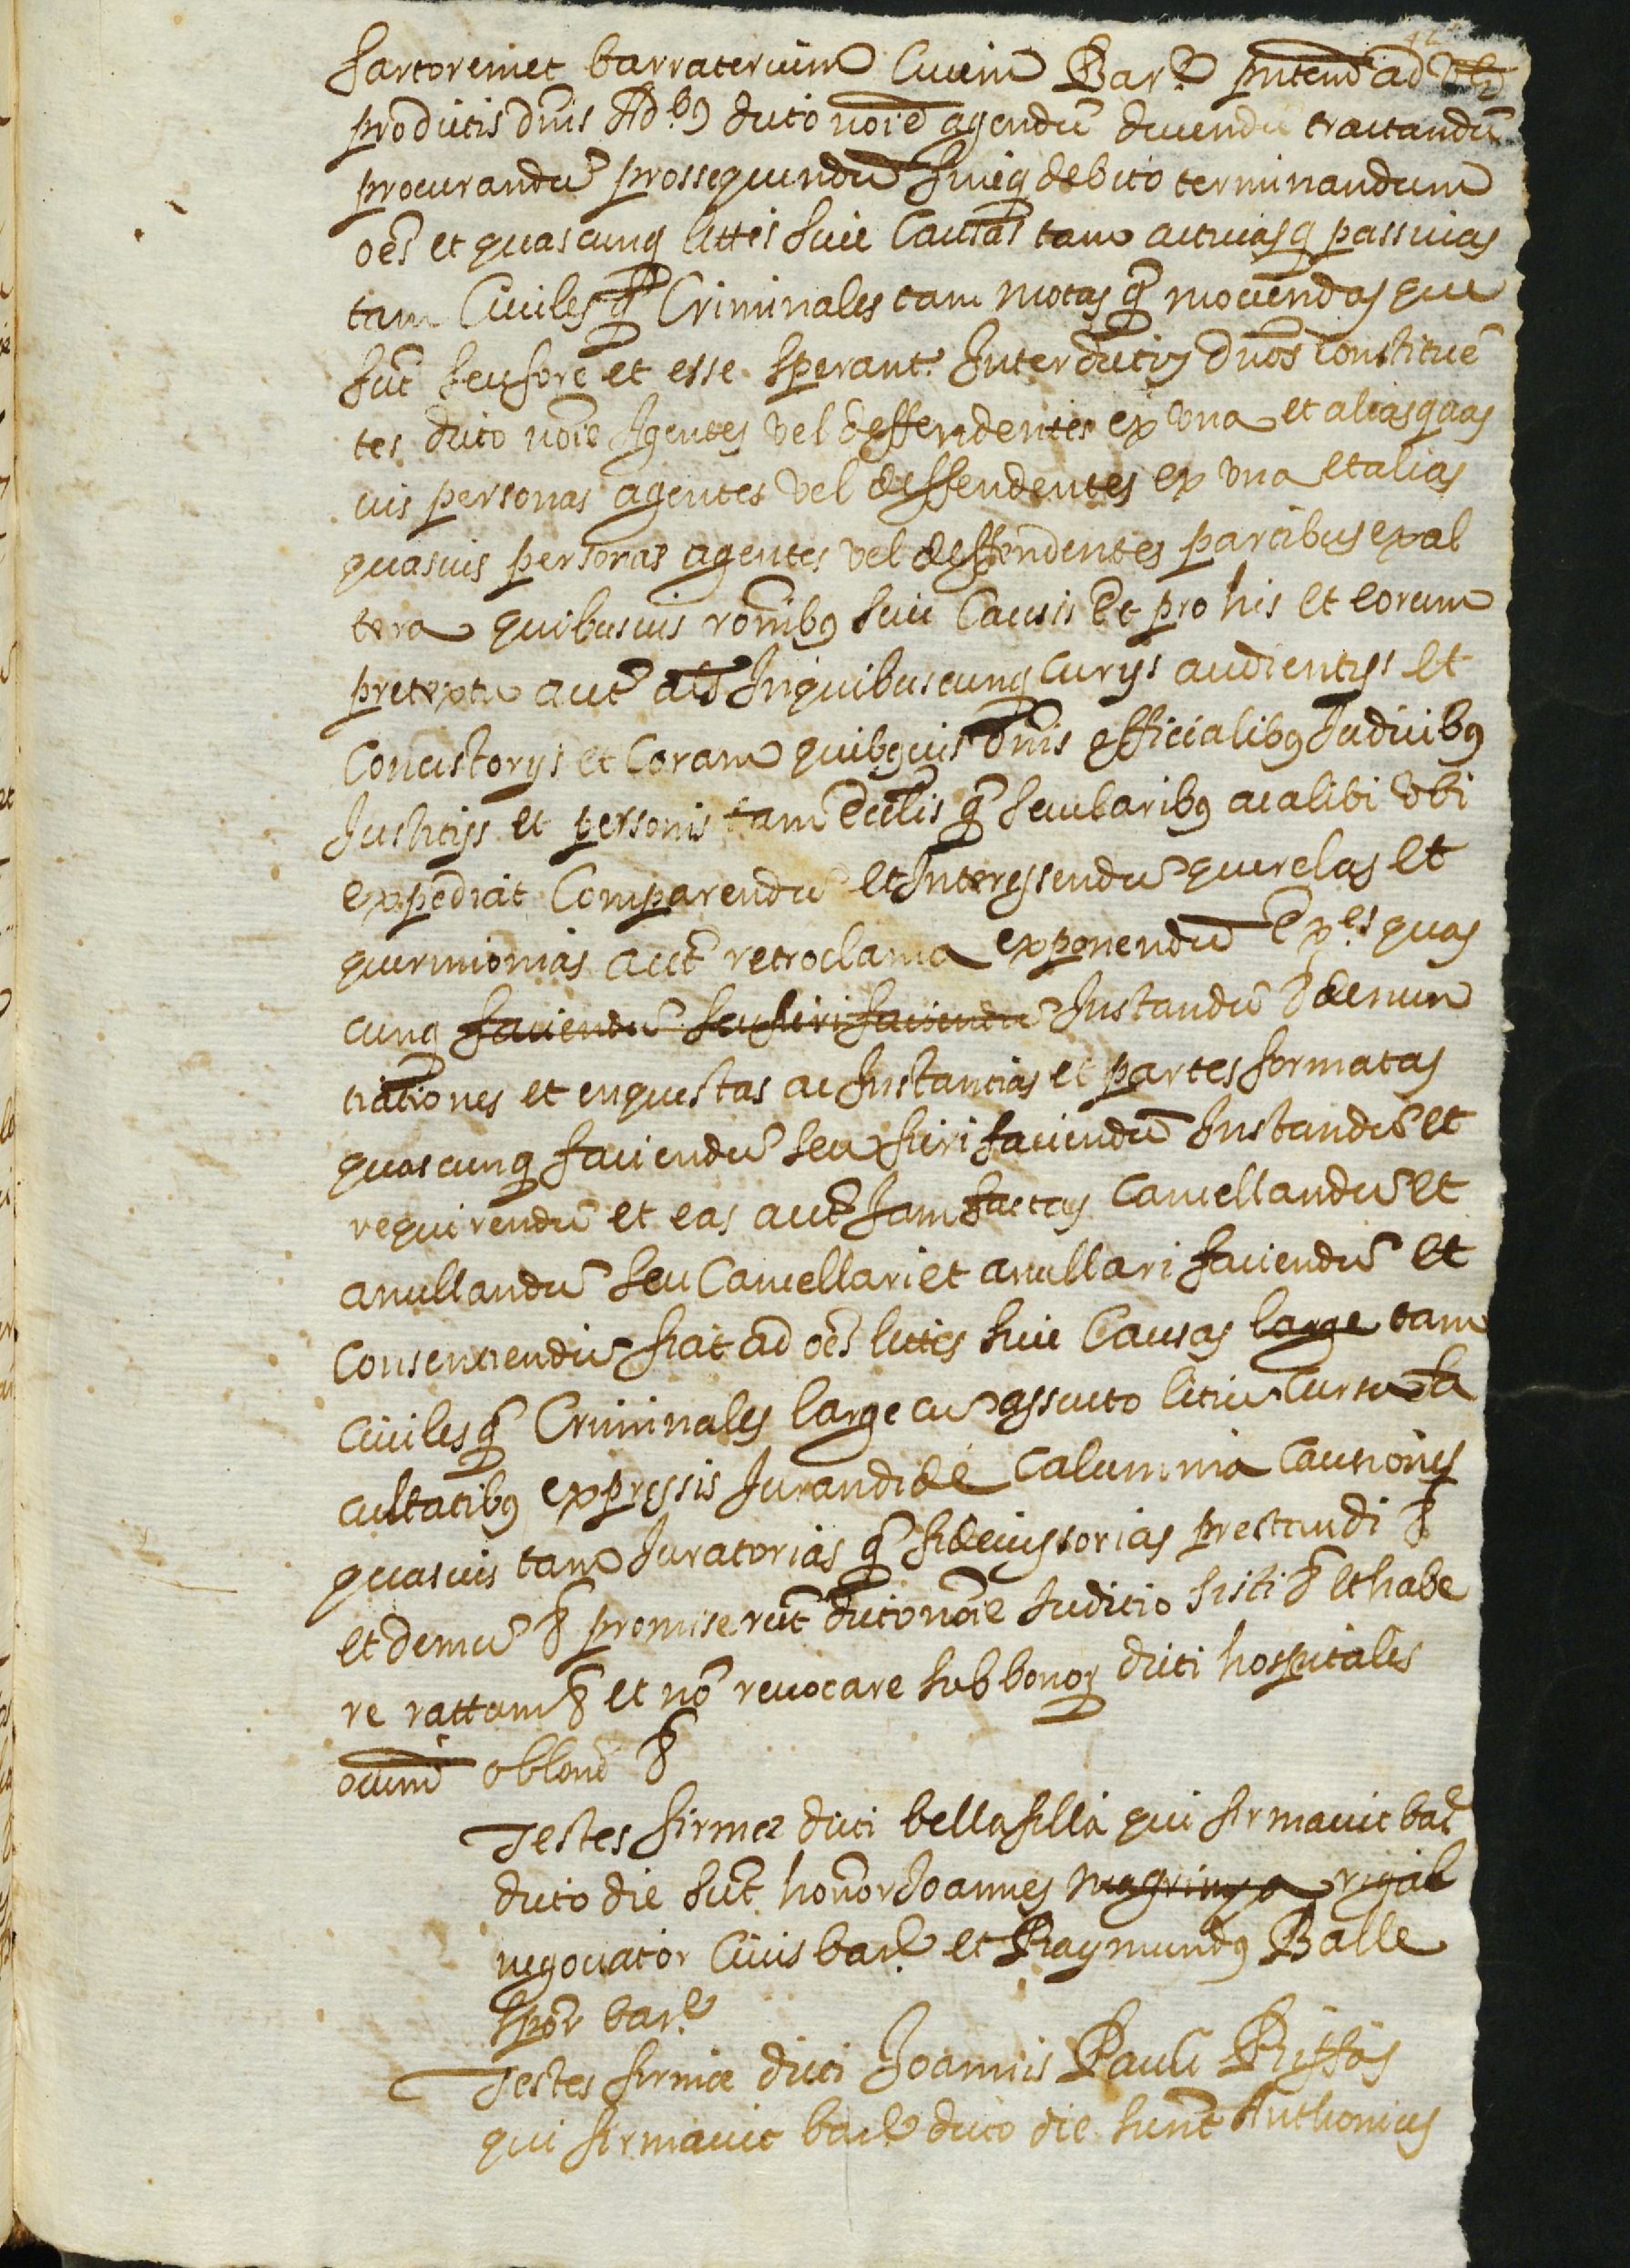 sartorem et barraterium Civem Barᵉ pntem ad
prodictis dnis Adᵇ⁹ dicto noie agendũ ducendũ tractandũ
procurandũ prossequendũ finiq debito terminandum
oẽs et quascunq littes sive Causas tam activas q passivas
tam Civiles q̃ Criminales tam motas q̃ movendas que
sũt seu fore et esse sperant Inter dictos dnos Constituẽ
tes dicto noie Agentes vel deffendentes ex una et alias quas
vis personas agentes vel deffendentes ex una et alias
quasvis personas agentes vel deffendentes partibus ex al
tera quibusvis rõnibꝰ sive Causis Et pro his et eorum
pretextu aut als In quibuscunq curijs audientijs et
Concistorijs et Coram quibꝰvis dnis officialibꝰ Judicibꝰ
Justitijs et personis tam Ecclis q̃ secularibꝰ ac alibi ubi
expediat Comparendũ et Interessendũ querelas et
querimonias aut retroclama exponendũ Exᵉˢ quas
cunq faciendũ seu fieri faciendũ Instandũ denun
tiationes et enquestas ac Instantias et partes formatas
quascunq faciendũ seu fieri faciendũ Instandũ et
requirendũ et eas aut Jam factas Cancellandũ et
anullandũ seu Cancellari et anullari faciendũ et
Consentiendũ fiat ad oẽs littes sive Causas large tam
Civiles q̃ Criminales large cũ assueto litiũ Cursu fa
cultatibꝰ expressis Jurandi de Calumnia Cautiones
quasvis tam Juratorias q̃ fideiussorias prestandi &
et demũ & promiserũt dicto noie Juditio sisti & et habe
re rattum & et nõ revocare sub bonoꝝ dicti hospitales
oĩum oblone &
Testes firmæ dicti bellafilla qui firmavit barᵉ
dicto die sũt honor Joannes magrinya rigal
negotiator Civis barᵉ et Raymundꝰ Balle
spõr barᵉ
Testes firmæ dicti Joannis Pauli Riffos
qui firmavit barᵉ dicto die sunt Anthonius